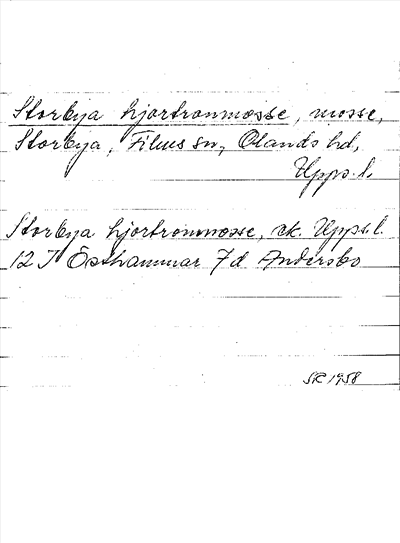 Storbya hjortronmosse, mosse,
Storbya, Films sn, Olands hd,
Upps.l.
Storbya hjortronmosse, ek. Upps.l.
12 I Östhammar 7d Andersbo
SR 1958